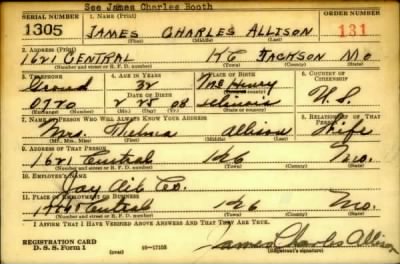 See James Charles Booth
SERIAL NUMBER 1. NAME (Print) ORDER NUMBER
1305 JAMES CHARLES ALLISON 131
(First) (Middle) (Last)
2. ADDRESS (Print)
1621 CENTRAL KC JACKSON MO
(Number and street or R. F. D. number) (Town) (County) (State)
3. TELEPHONE 4. AGE IN YEARS 5. PLACE OF BIRTH 6. COUNTRY OF CITIZENSHIP
Grand 32 McHenry
(Town or county)
0770 2 25 08 Illinois U.S.
(Exchange) (Number) (Mo.) (Day) (Yr.) (State or country)
7. NAME OF PERSON WHO WILL ALWAYS KNOW YOUR ADDRESS 8. RELATIONSHIP OF THAT PERSON
Mrs. Thelma Allison Wife
(Mr., Mrs., Miss) (First) (Middle) (Last)
9. ADDRESS OF THAT PERSON
1621 Central KC Mo.
(Number and street or R. F. D. number) (Town) (County) (State)
10. EMPLOYER'S NAME
Jay Co.
11. PLACE OF EMPLOYMENT OR BUSINESS
Central KC Mo.
(Number and street or R. F. D. number) (Town) (County) (State)
I AFFIRM THAT I HAVE VERIFIED ABOVE ANSWERS AND THAT THEY ARE TRUE.
REGISTRATION CARD
D. S. S. Form 1 (over) 16-17105 James Charles Allison
(Registrant's signature)